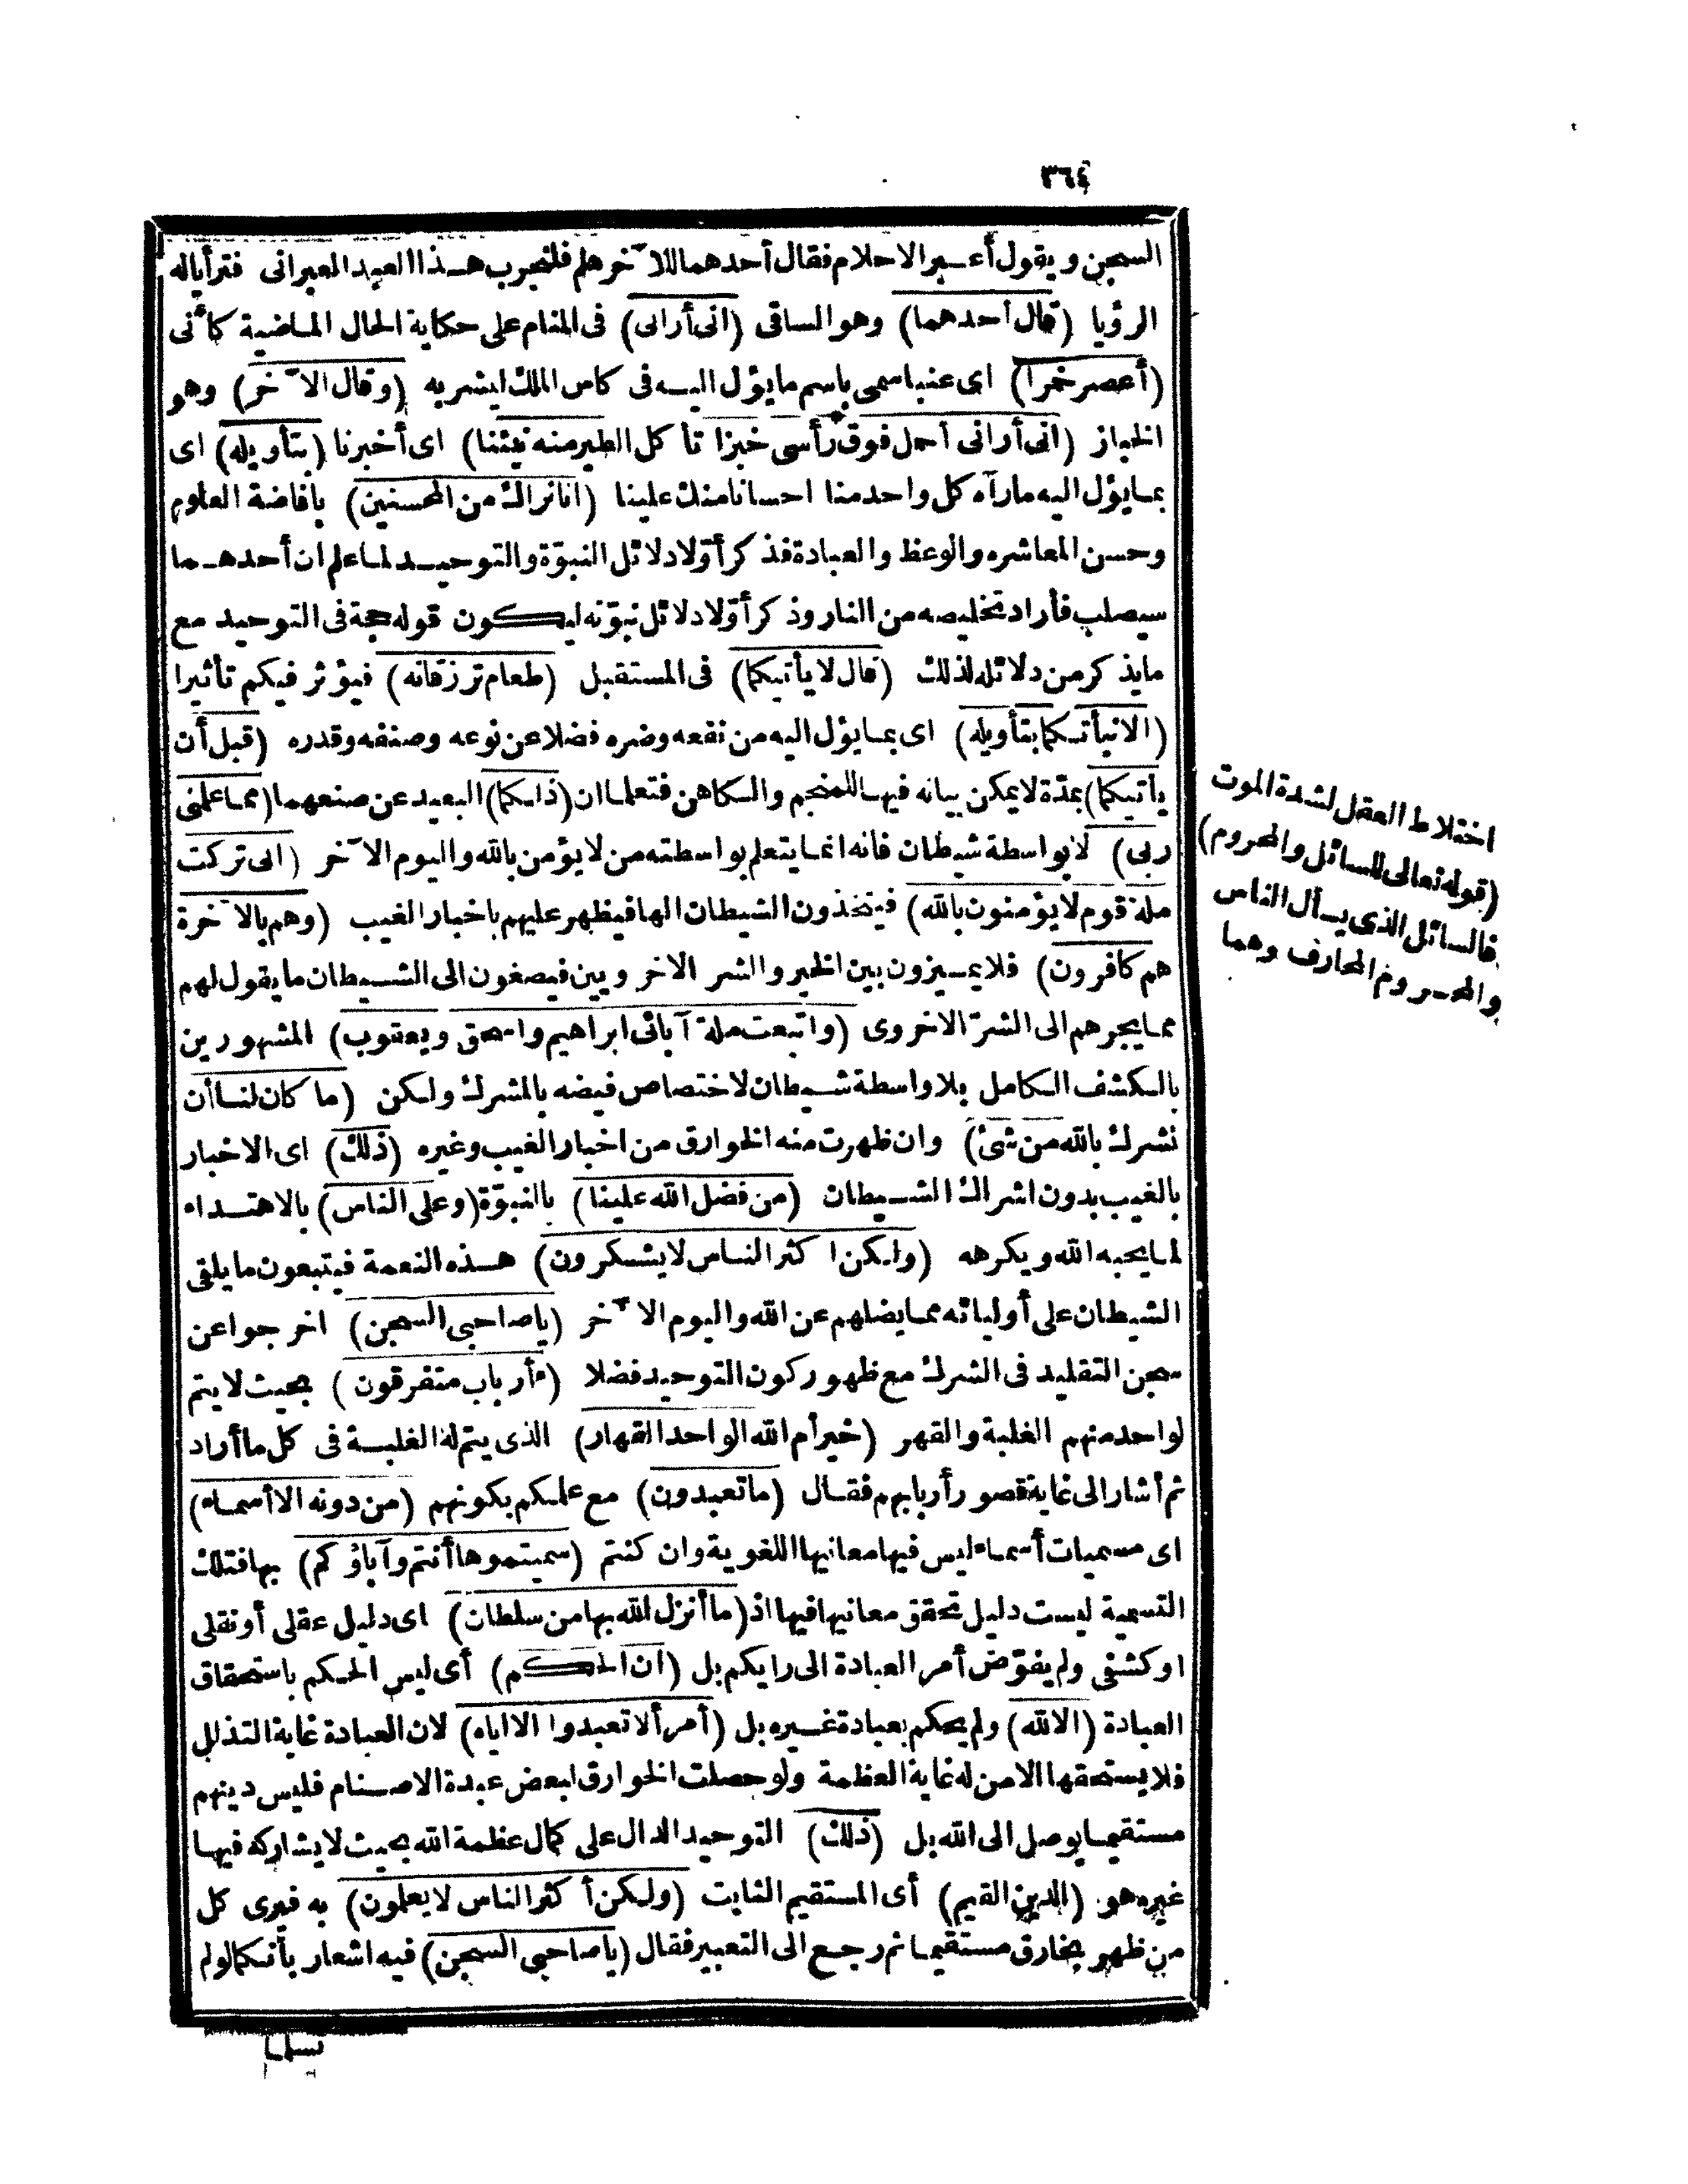 ٣٦٤
السجن ويقول أعبر الاحلام فقال أحدهما للآخر هلم فلنجرب هذا العبد العبرانى فترأيا له
الرؤيا (قال أحدهما) وهو الساقى (انى أرانى) فى المنام على حكاية الحال الماضية كأنى
(أعصر خمرا) اى عنبا سمى باسم ما يؤل اليه فى كاس الملك ليشربه (وقال الآخر) وهو
الخباز (انى أرانى أحمل فوق رأسى خبزا تأكل الطير منه نبئنا) اى أخبرنا (بتأويله) اى
بما يؤل اليه ما رآه كل واحد منا احسانا منك علينا (انا نراك من المحسنين) بافاضة العلوم
وحسن المعاشره والوعظ والعبادة فذكر أوّلا دلائل النبوّة والتوحيد لما علم ان أحدهما
سيصلب فأراد تخليصه من النار وذكر أوّلا دلائل نبوّته ليكون قوله حجة فى التوحيد مع
ما يذكر من دلائله لذلك (قال لا يأتيكما) فى المستقبل (طعام ترزقانه) فيؤثر فيكم تأثيرا
(الا نبأتكما بتأويله) اى بما يؤل اليه من نفعه وضره فضلا عن نوعه وصنفه وقدره (قبل أن
يأتيكما) بمدّة لا يمكن بيانه فيها للمنجم والكاهن فتعلما ان (ذلكما) البعيد عن صنعهما (مما علمنى
ربى) لا بواسطة شيطان فانه انما يتعلم بواسطته من لا يؤمن بالله واليوم الآخر (انى تركت
ملة قوم لا يؤمنون بالله) فيتخذون الشيطان الها فيظهر عليهم باخبار الغيب (وهم بالآخرة
هم كافرون) فلا يميزون بين الخير والشر الاخرويين فيصغون الى الشيطان ما يقول لهم
مما يجرهم الى الشرّ الاخروى (واتبعت ملة آبائى ابراهيم واسحق ويعقوب) المشهورين
بالكشف الكامل بلا واسطة شيطان لاختصاص فيضه بالمشرك ولكن (ما كان لنا أن
نشرك بالله من شئ) وان ظهرت منه الخوارق من اخبار الغيب وغيره (ذلك) اى الاخبار
بالغيب بدون اشراك الشيطان (من فضل الله علينا) بالنبوّة (وعلى الناس) بالاهتداء
لما يحبه الله ويكرهه (ولكن اكثر الناس لا يشكرون) هذه النعمة فيتبعون ما يلقى
الشيطان على أوليائه مما يضلهم عن الله واليوم الآخر (يا صاحبى السجن) اخرجوا عن
سجن التقليد فى الشرك مع ظهور كون التوحيد فضلا (ءأرباب متفرقون) بحيث لا يتم
لواحد منهم الغلبة والقهر (خير أم الله الواحد القهار) الذى يتم له الغلبة فى كل ما أراد
ثم أشار الى غاية قصور أربابهم فقال (ما تعبدون) مع علمكم بكونهم (من دونه الا أسماء)
اى مسميات أسماء ليس فيها معانيها اللغوية وان كنتم (سميتموها أنتم وآباؤكم) بها فتلك
التسمية ليست دليل تحقق معانيها فيها اذ (ما أنزل الله بها من سلطان) اى دليل عقلى أو نقلى
او كشفى ولم يفوّض أمر العبادة الى رايكم بل (ان الحكم) أى ليس الحكم باستحقاق
العبادة (الا لله) ولم يحكم بعبادة غيره بل (أمر ألا تعبدوا الا اياه) لان العبادة غاية التذلل
فلا يستحقها الا من له غاية العظمة ولو حصلت الخوارق لبعض عبدة الاصنام فليس دينهم
مستقيما يوصل الى الله بل (ذلك) التوحيد الدال على كمال عظمة الله بحيث لا يشاركه فيها
غيره هو (الدين القيم) أى المستقيم الثابت (ولكن أكثر الناس لا يعلمون) به فيرى كل
من ظهر بخارق مستقيما ثم رجع الى التعبير فقال (يا صاحبى السجن) فيه اشعار بأنكما لو لم
تسلما
اختلاط العقل لشدة الموت
(قوله تعالى للسائل والمحروم)
فالسائل الذى يسأل الناس
والمحروم المحارف وهما